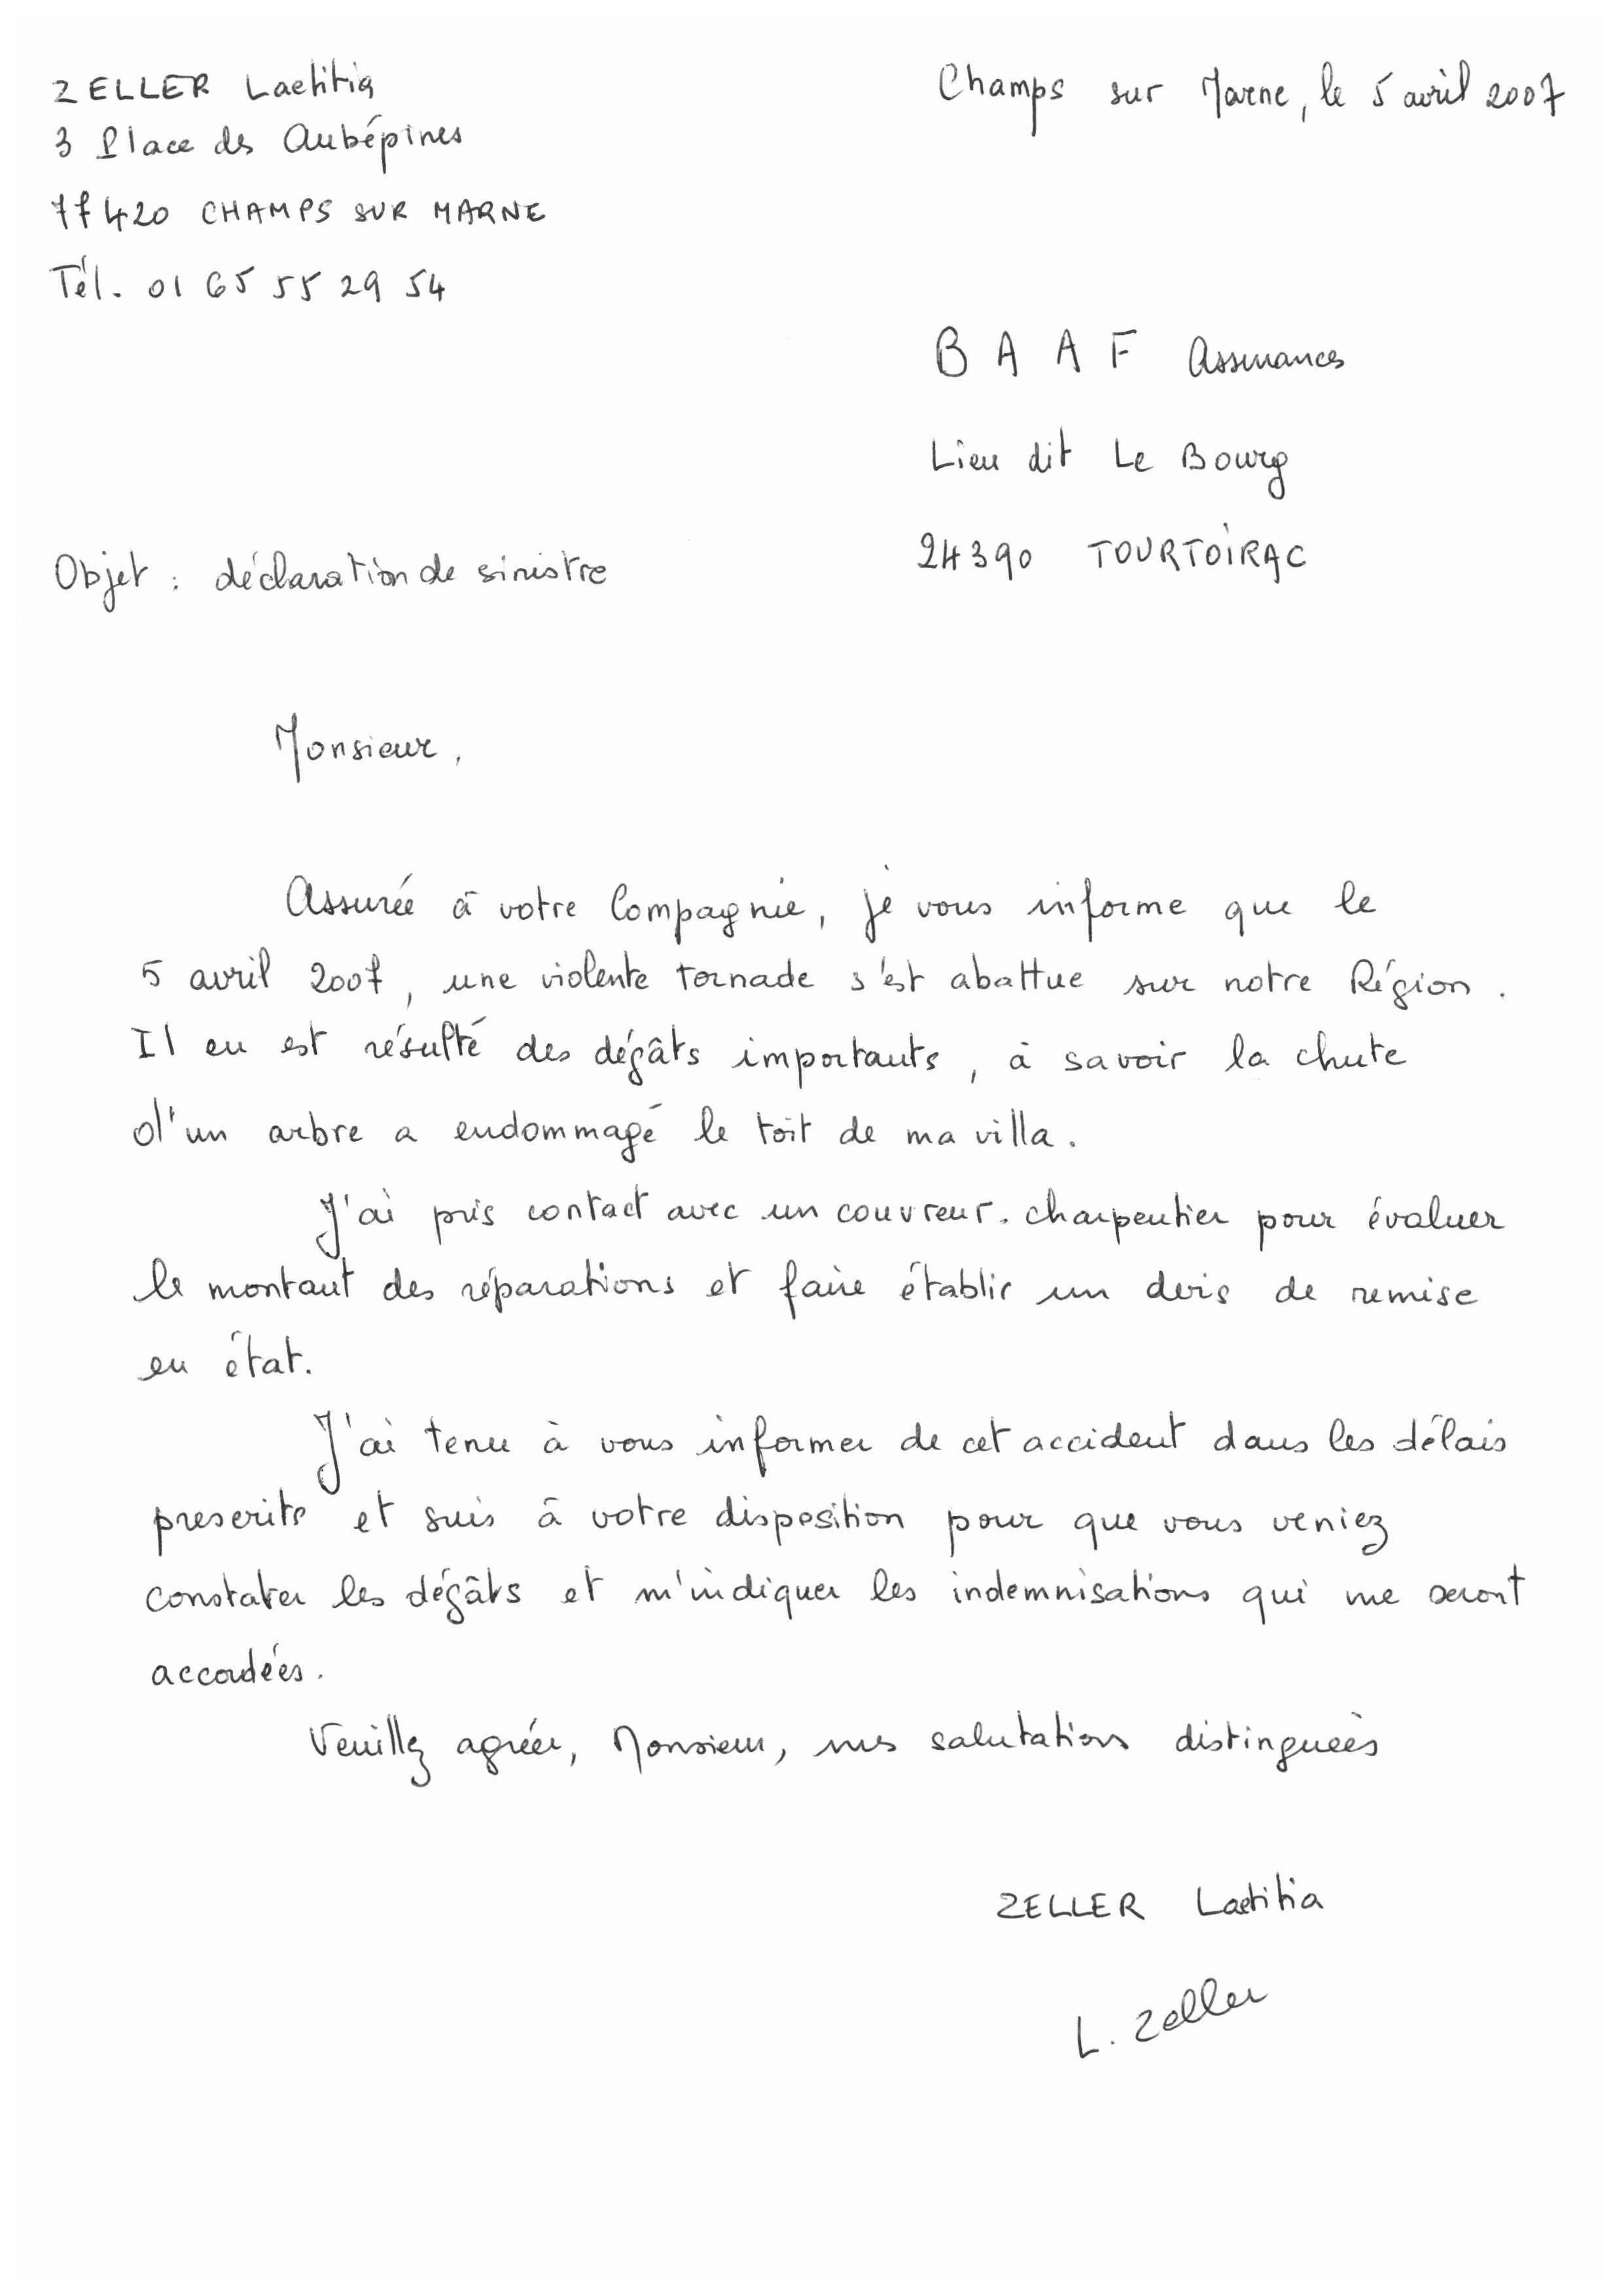 ZELLER Laetitia
3 Place des Aubépines
77420 CHAMPS SUR MARNE
Tél. 01 65 55 29 54
Champs sur Marne, le 5 avril 2007
BAAF Assurances
Lieu dit Le Bourg
24390 TOURTOIRAC
Objet : déclaration de sinistre
Monsieur,
Assurée à votre Compagnie, je vous informe que le
5 avril 2007, une violente tornade s'est abattue sur notre Région.
Il en est résulté des dégâts importants, à savoir la chute
d'un arbre a endommagé le toit de ma villa.
J'ai pris contact avec un couvreur. charpentier pour évaluer
le montant des réparations et faire établir un devis de remise
en état.
J'ai tenu à vous informer de cet accident dans les délais
prescrits et suis à votre disposition pour que vous veniez
constater les dégâts et m'indiquer les indemnisations qui me seront
accordées.
Veuillez agréer, Monsieur, mes salutations distinguées
ZELLER Laetitia
L. Zeller